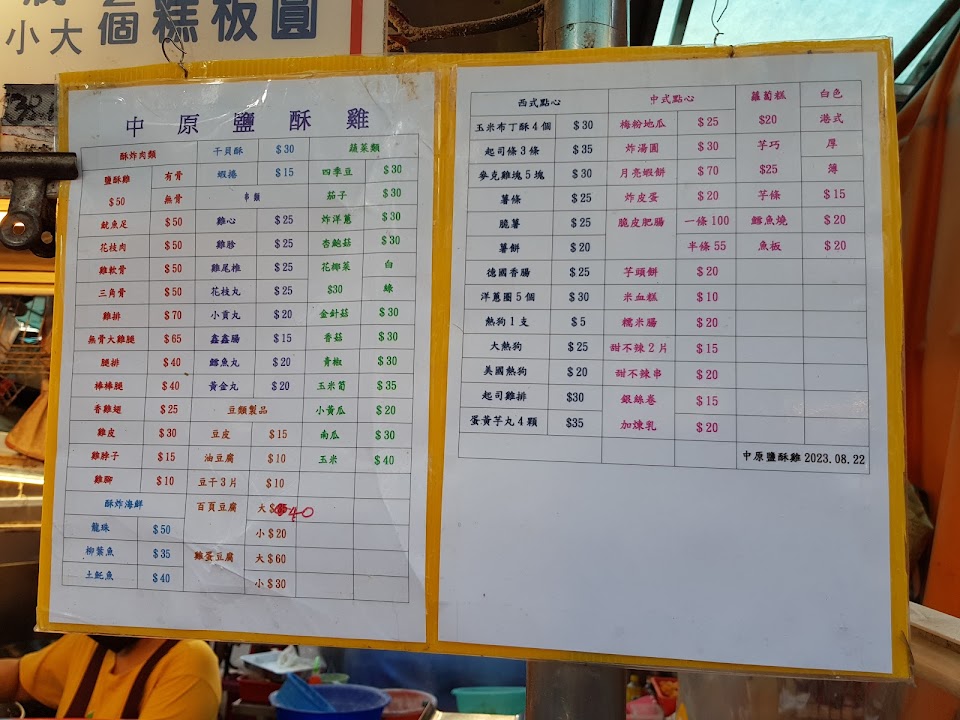 小大個糕板圓
中原鹽酥雞
酥炸肉類 干貝酥 $30 蔬菜類
鹽酥雞 有骨 蝦捲 $15 四季豆 $30
$50 無骨 串類 茄子 $30
魷魚足 $50 雞心 $25 炸洋蔥 $30
花枝肉 $50 雞胗 $25 杏鮑菇 $30
雞軟骨 $50 雞尾椎 $25 花椰菜 白
三角骨 $50 花枝丸 $25 $30 綠
雞排 $70 小貢丸 $20 金針菇 $30
無骨大雞腿 $65 鑫鑫腸 $15 香菇 $30
腿排 $40 鱈魚丸 $20 青椒 $30
棒棒腿 $40 黃金丸 $20 玉米筍 $35
香雞翅 $25 豆類製品 小黃瓜 $20
雞皮 $30 豆皮 $15 南瓜 $30
雞脖子 $15 油豆腐 $10 玉米 $40
雞腳 $10 豆干3片 $10
酥炸海鮮 百頁豆腐 大 $40
龍珠 $50 小 $20
柳葉魚 $35 雞蛋豆腐 大 $60
土魠魚 $40 小 $30
西式點心 中式點心 蘿蔔糕 白色
玉米布丁酥4個 $30 梅粉地瓜 $25 $20 港式
起司條3條 $35 炸湯圓 $30 芋巧 厚
麥克雞塊5塊 $30 月亮蝦餅 $70 $25 薄
薯條 $25 炸皮蛋 $20 芋條 $15
脆薯 $25 脆皮肥腸 一條100 鱈魚燒 $20
薯餅 $20 半條55 魚板 $20
德國香腸 $25 芋頭餅 $20
洋蔥圈5個 $30 米血糕 $10
熱狗1支 $5 糯米腸 $20
大熱狗 $25 甜不辣2片 $15
美國熱狗 $20 甜不辣串 $20
起司雞排 $30 銀絲卷 $15
蛋黃芋丸4顆 $35 加煉乳 $20
中原鹽酥雞2023.08.22